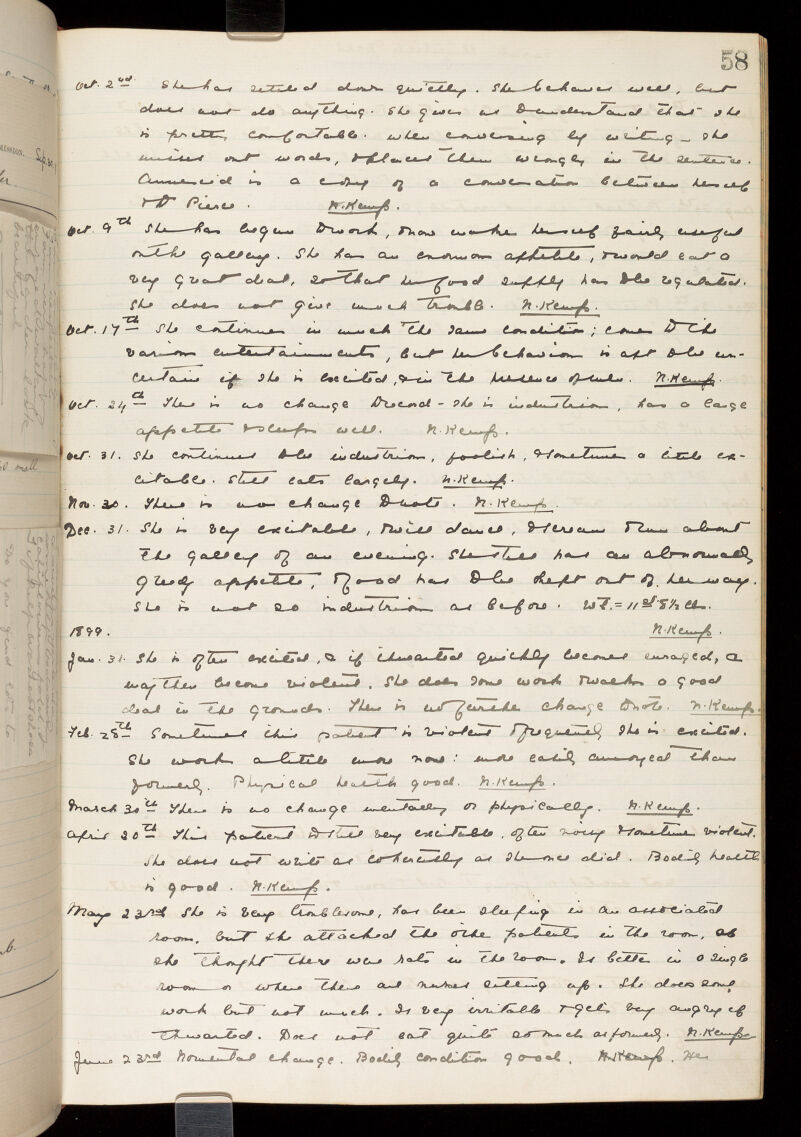 58
Oct. 2nd She has settled down quietly. She behaves well, but
does not do anything. She gives us to understand that she
is pretty comfortable. When conversing by writing - she
misses out words, & places them wrongly in the sentence.
Annexed is a copy of a conversation between herself
& Dr Pierce. N. Kemp.
Oct. 9th She has begun to work, & now makes herself fairly useful
in the gallery. She has an enormous appetite, & would eat a
very great deal, so that her food supply has to be regulated.
She does not give much trouble. N. Kemp.
Oct. 17th She continues in much the same condition; comes to the
various entertainments, but her behaviour is apt to be un-
certain if she is excited, & in the presence of men. N. Kemp.
Oct. 24th There is no change to record - she is industrious, has a large
appetite & sleeps well. N. Kemp.
Oct. 31. She continues to be industrious, foolish, & sometimes a little ex-
citable. Still eats largely. N. Kemp.
Nov. 30. There is no change to note. N. Kemp.
Dec. 31. She is very excitable, & will dance, & scream & run about
the gallery of an evening. She still has an abnormally
greedy appetite, & food has to be kept out of her way.
She is not so industrious as before. Wt. = 11st 8½ lbs.
1899. N. Kemp.
Jan. 31. She is often excited, & if thwarted quickly becomes enraged, &
may then become violent. She does some work & walks a good
deal in the grounds. There is no further change to note. N. Kemp.
Feb. 28th Sometimes this patient is violent & frequently she is excited.
She works a little more now: more easily annoyed than
formerly. Physical health good. N. Kemp.
March 30th There is no change mentally or physically. N. Kemp.
April 30th This patient is still very excitable, often noisy & sometimes violent.
She does not write as coherently as she once did. Bodily health
is good. N. Kemp.
May 23rd She is very troublesome, has been sleeping in an associated
room, but she attacked the other patients in the room, as
she thought there were rats in the room. Is better in a single
room or where there are nurses sitting up. She does some
work but not much. Is very irritable & gets very angry if
thwarted. Does not eat quite so much as formerly. N. Kemp
June 23rd No mental change. Bodily condition good. N. Kemp.